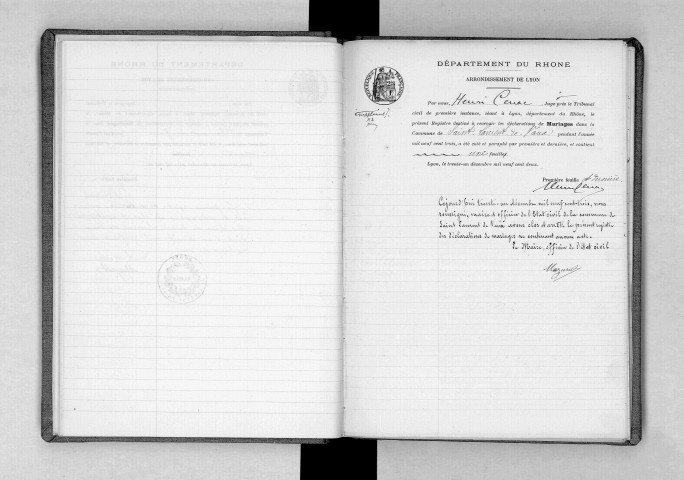 DÉPARTEMENT DU RHONE
ARRONDISSEMENT DE LYON
Par nous, Henri Juge près le Tribunal
civil de première instance, séant à Lyon, département du Rhône, le
présent Registre destiné à recevoir les déclarations de Mariages dans la
Commune de Saint Laurent de Vaux pendant l'année
mil neuf cent trois, a été coté et paraphé par première et dernière, et contient
une feuilles.
Lyon, le trente-un décembre mil neuf cent deux.
Première feuille et dernière
Cejourd'hui trente-un décembre mil neuf cent trois, nous
soussigné, maire et officier de l'Etat civil de la commune de
Saint Laurent de Vaux avons clos et arrêté le présent registre
des déclarations de mariages ne contenant aucun acte.
Le Maire, officier de l'état civil